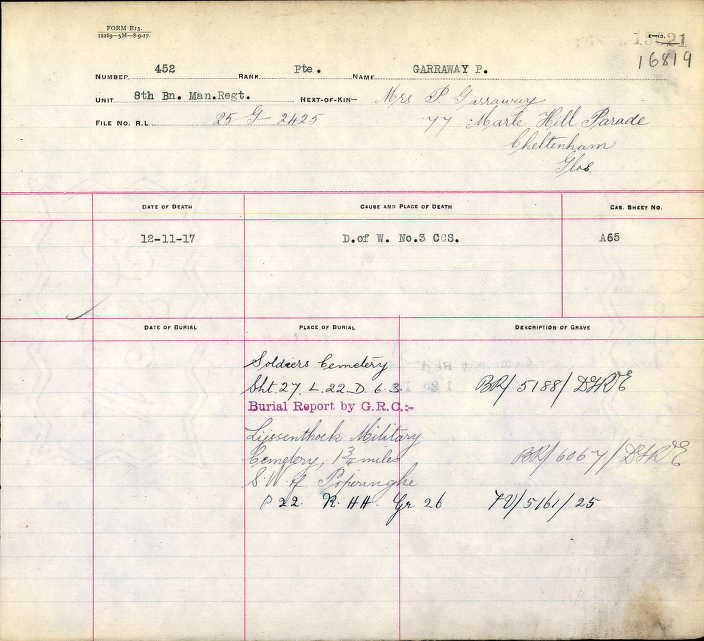 FORM R15.
12269—5M—8-9-17.
16819
NUMBER 452 RANK Pte. NAME GARRAWAY P.
UNIT 8th Bn. Man.Regt. NEXT-OF-KIN— Mrs P Garraway
FILE NO. R.L. 25 G 2425 77 Marle Hill Parade
Cheltenham
Glos.
DATE OF DEATH CAUSE AND PLACE OF DEATH CAS. SHEET NO.
12-11-17 D.of W. No.3 CCS. A65
DATE OF BURIAL PLACE OF BURIAL DESCRIPTION OF GRAVE
Soldiers Cemetery
Sht. 27. L. 22. D. 6. 3. BR/5188/DGR&E
Burial Report by G.R.C.:-
Lijssenthoek Military
Cemetery, 1¾ miles BR/6067/DGR&E
S.W of Poperinghe
P 22 R. HH. Gr 26 /5161/25